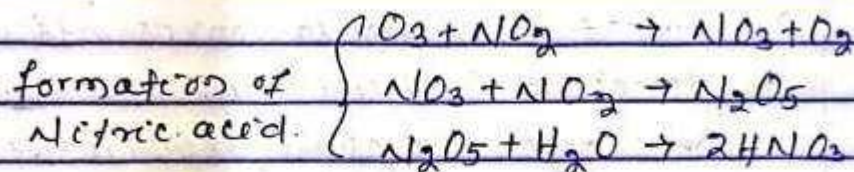 formation of Nitric acid.
O3 + NO2 → NO3 + O2
NO3 + NO2 → N2O5
N2O5 + H2O → 2HNO3